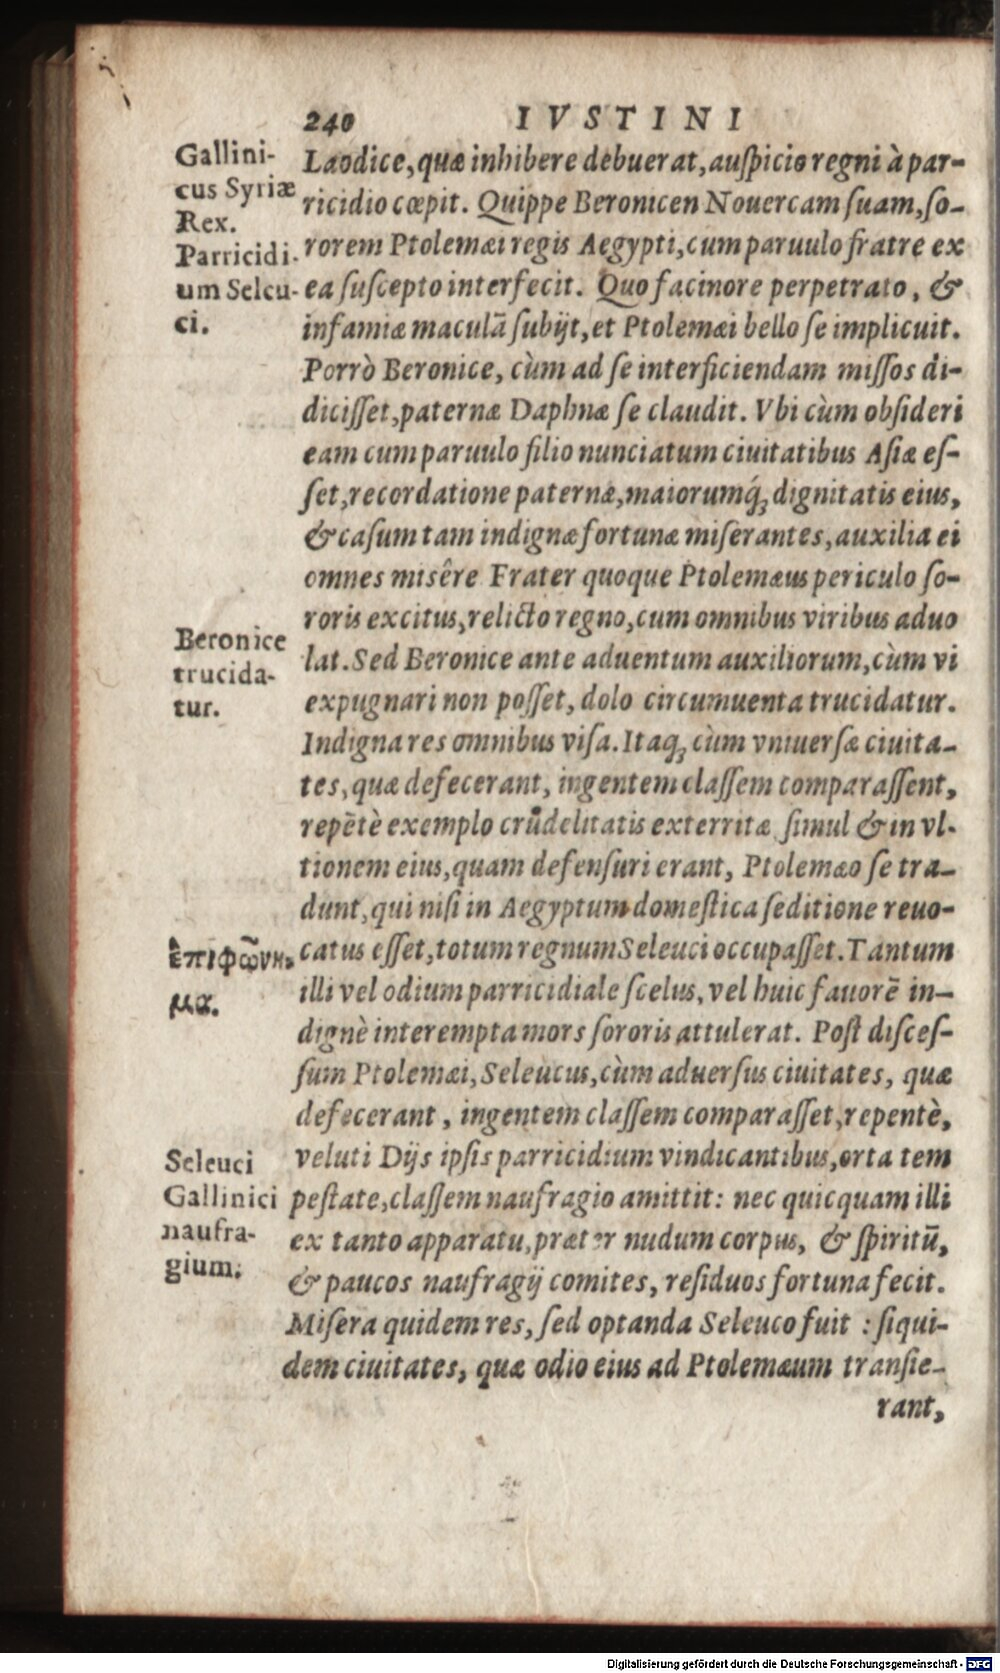 240 IVSTINI
Gallini-
cus Syriæ
Rex.
Parricidi-
um Seleu-
ci.
Laodice, quæ inhibere debuerat, auſpicio regni à par-
ricidio cœpit. Quippe Beronicen Nouercam ſuam, ſo-
rorem Ptolemæi regis Aegypti, cum paruulo fratre ex
ea ſuſcepto interfecit. Quo facinore perpetrato, &
infamiæ maculã ſubijt, et Ptolemæi bello ſe implicuit.
Porrò Beronice, cùm ad ſe interficiendam miſſos di-
diciſſet, paternæ Daphnæ ſe claudit. Vbi cùm obſideri
eam cum paruulo filio nunciatum ciuitatibus Aſiæ eſ-
ſet, recordatione paternæ, maiorumq́ꝫ dignitatis eius,
& caſum tam indignæ fortunæ miſerantes, auxilia ei
omnes misêre Frater quoque Ptolemæus periculo ſo-
roris excitus, relicto regno, cum omnibus viribus aduo
Beronice
trucida-
tur.
lat. Sed Beronice ante aduentum auxiliorum, cùm vi
expugnari non poſſet, dolo circumuenta trucidatur.
Indigna res omnibus viſa. Itaqꝫ cùm vniuerſæ ciuita-
tes, quæ defecerant, ingentem claſſem comparaſſent,
repẽtè exemplo crudelitatis exterritæ ſimul & in vl-
tionem eius, quam defenſuri erant, Ptolemæo ſe tra-
dunt, qui niſi in Aegyptum domeſtica ſeditione reuo-
catus eſſet, totum regnum Seleuci occupaſſet. Tantum
ἐπιφώνη-
μα.
illi vel odium parricidiale ſcelus, vel huic fauorẽ in-
dignè interempta mors ſororis attulerat. Poſt diſceſ-
ſum Ptolemæi, Seleucus, cùm aduerſus ciuitates, quæ
defecerant, ingentem claſſem comparaſſet, repentè,
Seleuci
Gallinici
naufra-
gium.
veluti Dijs ipſis parricidium vindicantibus, orta tem
peſtate, claſſem naufragio amittit: nec quicquam illi
ex tanto apparatu, præter nudum corpus, & ſpiritũ,
& paucos naufragij comites, reſiduos fortuna fecit.
Miſera quidem res, ſed optanda Seleuco fuit : ſiqui-
dem ciuitates, quæ odio eius ad Ptolemæum tranſie-
rant,
Digitalisierung gefördert durch die Deutsche Forschungsgemeinschaft - DFG